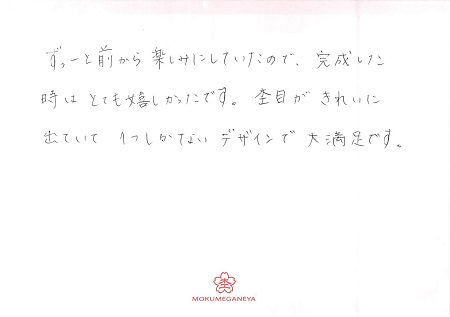 ずっーと前から楽しみにしていたので、完成した
時はとても嬉しかったです。杢目がきれいに
出ていて1つしかないデザインで大満足です。
杢
MOKUMEGANEYA